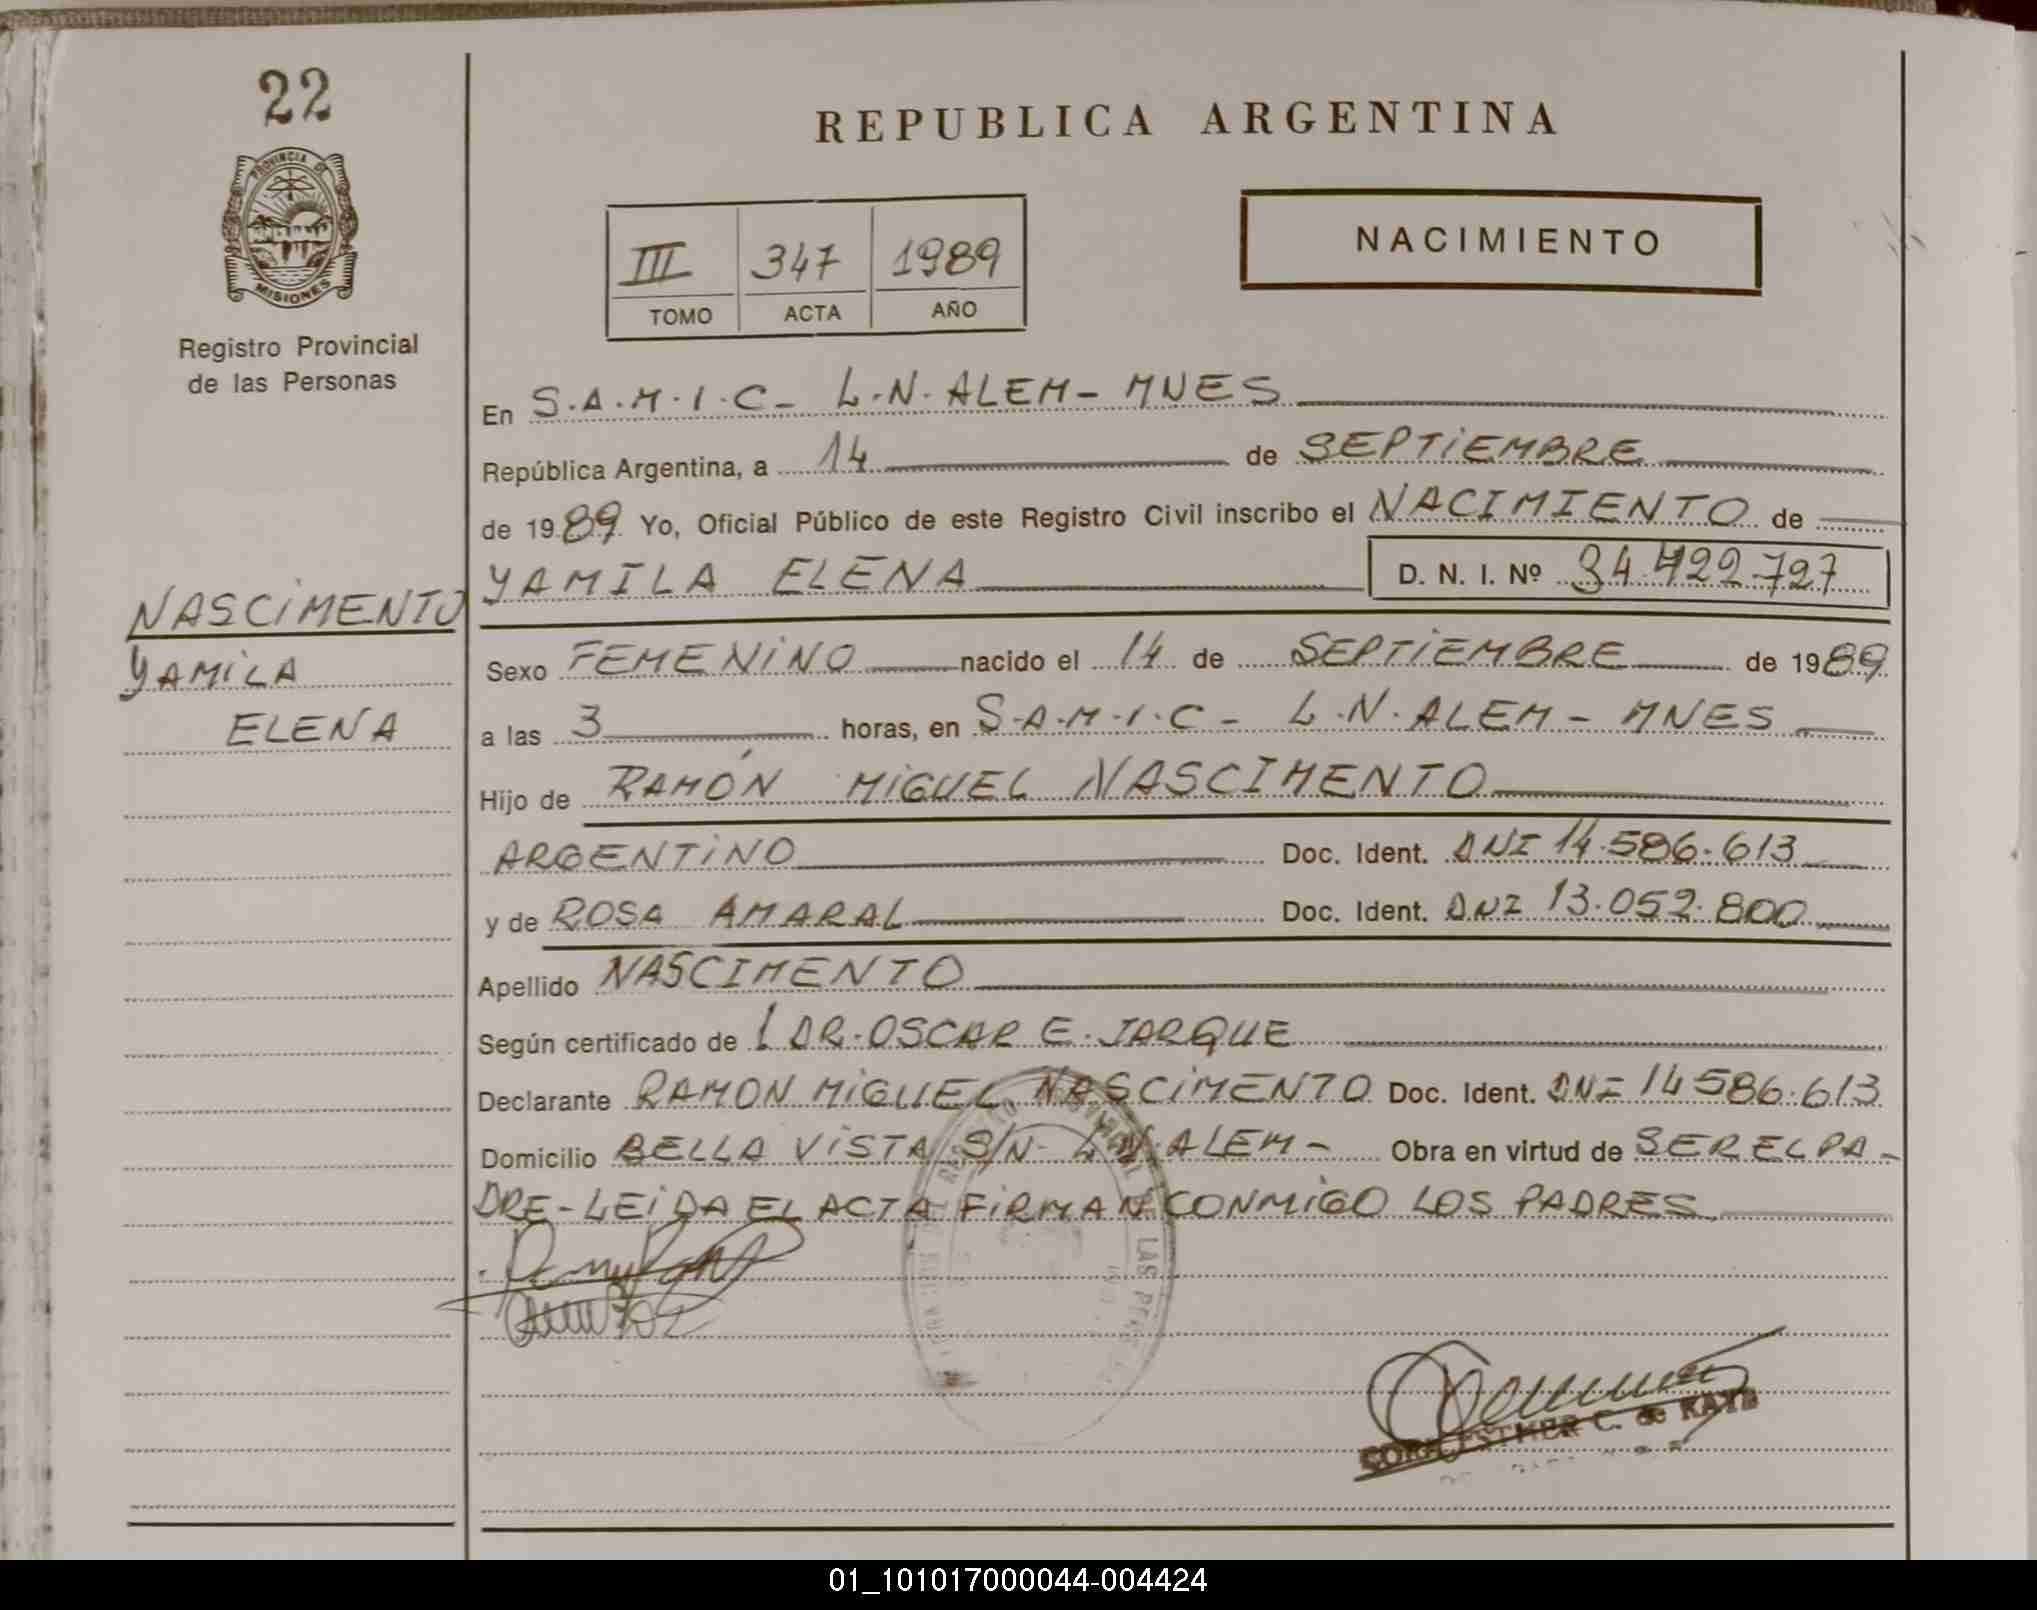 22
REPUBLICA ARGENTINA
PROVINCIA DE
MISIONES
Registro Provincial
de las Personas
III 347 1989
TOMO ACTA AÑO
NACIMIENTO
En S.A.M.I.C - L.N. ALEM - MNES
República Argentina, a 14 de SEPTIEMBRE
de 1989 Yo, Oficial Público de este Registro Civil inscribo el NACIMIENTO de
YAMILA ELENA D. N. I. Nº 34.422.727
NASCIMENTO
YAMILA
ELENA
Sexo FEMENINO nacido el 14 de SEPTIEMBRE de 1989
a las 3 horas, en S.A.M.I.C - L.N. ALEM - MNES
Hijo de RAMÓN MIGUEL NASCIMENTO
ARGENTINO Doc. Ident. DNI 14.586.613
y de ROSA AMARAL Doc. Ident. DNI 13.052.800
Apellido NASCIMENTO
Según certificado de l DR. OSCAR E. JARQUE
Declarante RAMON MIGUEL NASCIMENTO Doc. Ident. DNI 14586.613
Domicilio BELLA VISTA S/N - L.N. ALEM - Obra en virtud de SER EL PA-
DRE - LEIDA EL ACTA FIRMAN CONMIGO LOS PADRES
ESTHER C. de
01_101017000044-004424